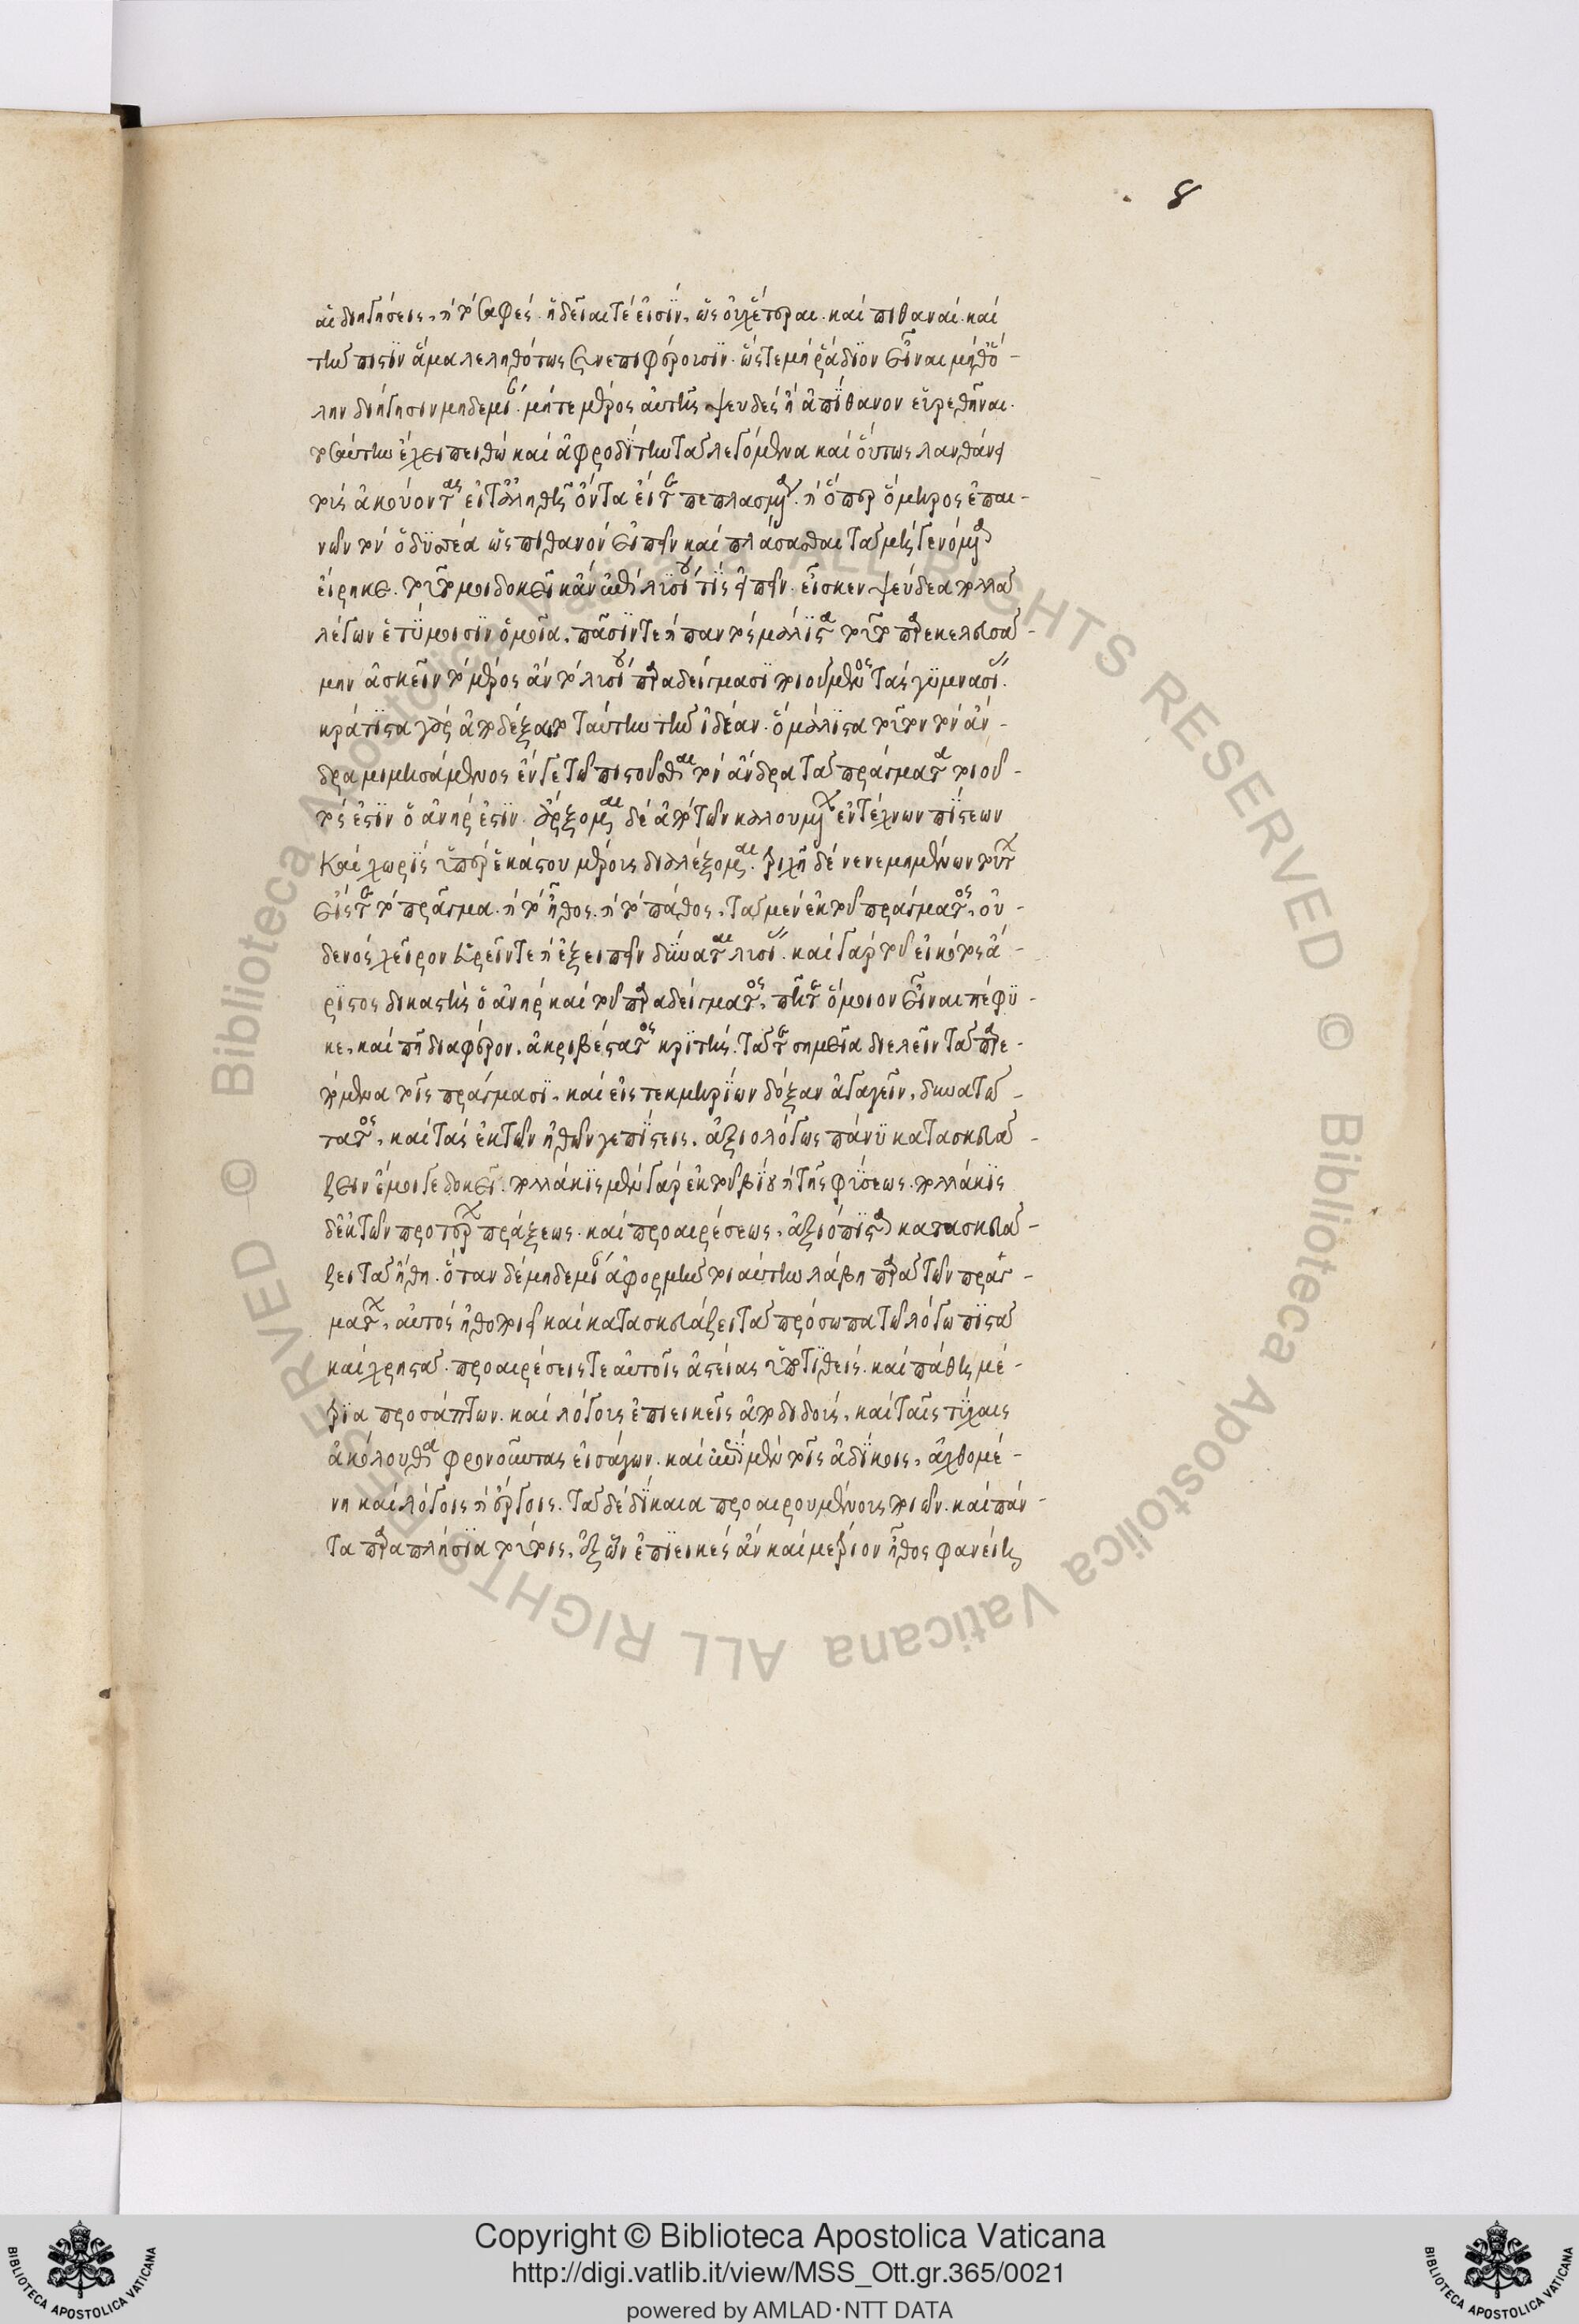 αἱ διηγήσεις, καὶ τὸ σαφές. ἡδεῖαι τέ εἰσϊν, ὡς οὐχ ἕτεραι. καὶ πιθαναὶ. καὶ
τὴν πίστϊν ἅμα λεληθότως συνεπιφέρουσϊν. ὥστε μὴ ῥάδϊον εἶναι μήθ' ὅ-
λην διήγησιν μηδεμίαν. μήτε μέρος αὐτῆς ψευδὲς ἢ ἀπΐθανον εὑρεθῆναι.
τοσαύτην ἔχει πειθὼ καὶ ἀφροδΐτην τὰ λεγόμενα καὶ οὕτως λανθάνει
τοὺς ἀκούοντας εἴτ' ἀληθῆ ὄντα εἴτε πεπλασμένα. καὶ ὅπερ ὅμηρος ἐπαι-
νῶν τὸν ὀδυσσέα ὡς πιθανὸν εἰπεῖν καὶ πλάσασθαι τὰ μὴ γενόμενα
εἴρηκε. τοῦτό μοι δοκεῖ κἂν ἐπὶ λυσίου τὶς εἰπεῖν. εἶσκεν ψεύδεα πολλὰ
λέγων ἐτύμοισϊν ὁμοῖα. πᾶσΐν τε καὶ παντὸς μάλϊστα τοῦτο παρεκελευσά-
μην ἀσκεῖν τὸ μέρος ἂν τὸ λυσίου παραδείγμασϊ ποιουμένους τὰς γυμνασίας.
κράτϊστα γὰρ ἀποδέξαιτο ταύτην τὴν ἰδέαν. ὁ μάλϊστα τοῦτον τὸν ἄν-
δρα μιμησάμενος ἐν γε τῷ πιστοῦσθαι τὸν ἄνδρα τὰ πράγματα ποιοῦ-
τος ἐστϊν ὁ ἀνὴρ ἐστϊν. ἄρξομαι δὲ ἀπὸ τῶν καλουμένων ἐντέχνων πΐστεων
καὶ χωρὶς ὑπὲρ ἑκάστου μέρους διαλέξομαι. τριχῆ δὲ νενεμημένων τούτων
εἴς τε τὸ πρᾶγμα. καὶ τὸ ἦθος. καὶ τὸ πάθος. τὰ μὲν ἐκ τοῦ πράγματος. οὐ-
δενὸς χεῖρον εὑρεῖν τε καὶ ἐξειπεῖν δύναται λυσίας. καὶ γὰρ τοῦ εἰκότος ἄ-
ρϊστος δικαστὴς ὁ ἀνὴρ καὶ τοῦ παραδείγματος. πῆ τε ὅμοιον εἶναι πέφυ-
κε, καὶ πῆ διαφέρον. ἀκριβέστατος κριτὴς. τά τε σημεῖα διελεῖν τὰ παρε-
πόμενα τοῖς πράγμασϊ. καὶ εἰς τεκμηρίων δόξαν ἀγαγεῖν. δυνατώ-
τατος. καὶ τὰς ἐκ τῶν ἠθῶν γε πΐστεις, ἀξιολόγως πάνυ κατασκευά-
ζειν ἔμοιγε δοκεῖ. πολλάκις μὲν γὰρ ἐκ τοῦ βίου καὶ τῆς φύσεως. πολλάκις
δ' ἐκ τῶν προτέρων πράξεως. καὶ προαιρέσεως, ἀξιόπϊστα κατασκευά-
ζει τὰ ἤθη. ὅταν δὲ μηδεμίαν ἀφορμὴν τοιαύτην λάβη παρὰ τῶν πραγ-
μάτων, αὐτὸς ἠθοποιεῖ καὶ κατασκευάζει τὰ πρόσωπα τῷ λόγῳ πϊστὰ
καὶ χρηστὰ. προαιρέσεις τε αὐτοῖς ἀστείας ὑποτϊθεὶς. καὶ πάθη μέ-
τρϊα προσάπτων. καὶ λόγους ἐπιεικεῖς ἀποδιδοὺς, καὶ ταῖς τύχαις
ἀκόλουθα φρονοῦντας εἰσάγων. καὶ ἐπὶ μὲν τοῖς ἀδίκοις, ἀχθομέ-
νη καὶ λόγοις καὶ ἔργοις. τὰ δὲ δΐκαια προαιρουμένους ποιῶν. καὶ πάν-
τα παραπλήσϊα τούτοις, ἐξ ὧν ἐπϊεικὲς ἂν καὶ μέτριον ἦθος φανείη
8
Copyright © Biblioteca Apostolica Vaticana
http://digi.vatlib.it/view/MSS_Ott.gr.365/0021
powered by AMLAD·NTT DATA